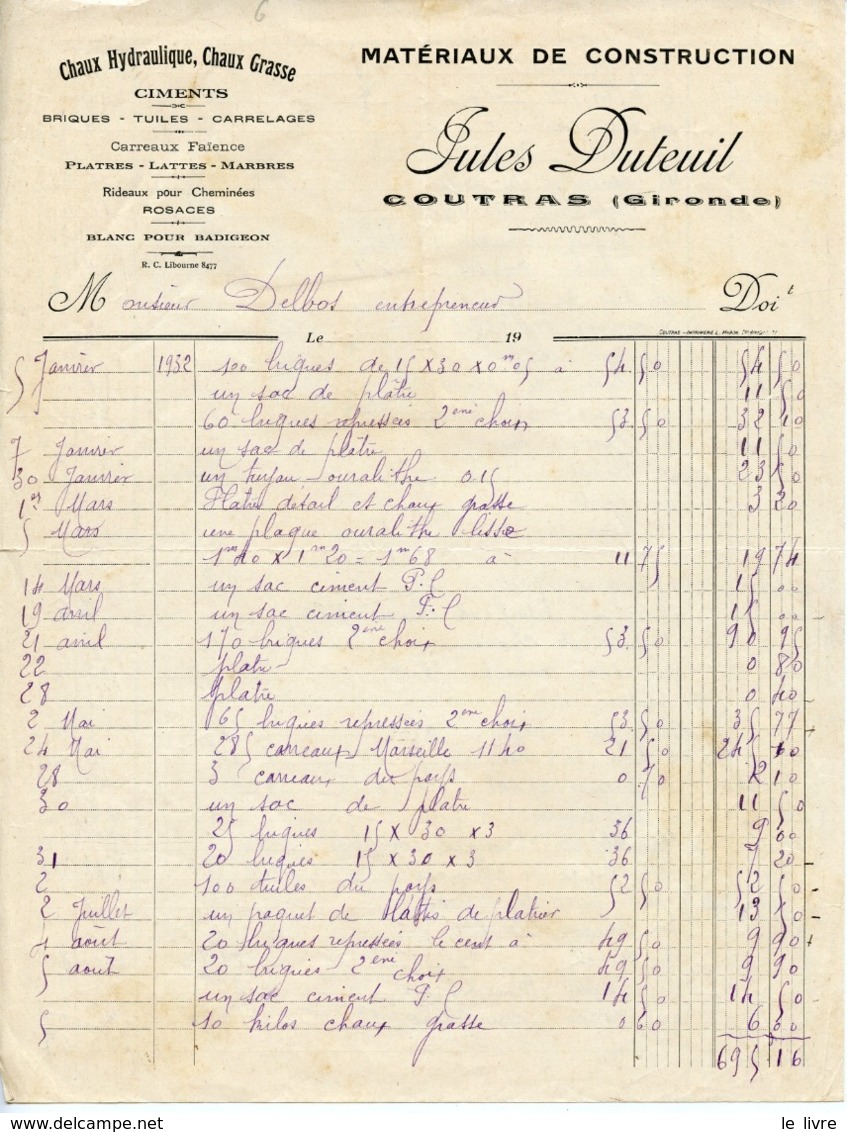 Chaux Hydraulique, Chaux Grasse
CIMENTS
BRIQUES - TUILES - CARRELAGES
Carreaux Faïence
PLATRES - LATTES - MARBRES
Rideaux pour Cheminées
ROSACES
BLANC POUR BADIGEON
R. C. Libourne 8477
MATÉRIAUX DE CONSTRUCTION
Jules Duteuil
COUTRAS (Gironde)
Monsieur Delbos entrepreneur Doit
Le 19
5 Janvier 1932 100 briques de 15 x 30 x 0m05 à 54.50 54 50
un sac de platre 11 50
60 briques repressées 2ème choix 53.50 32 10
7 Janvier un sac de platre 11 50
30 Janvier un tuyau ouralithe 0.15 23 50
1er Mars Platre detail et chaux grasse 3 20
5 Mars une plaque ouralithe lisse
1m40 x 1m20 = 1m68 à 11 75 19 74
14 Mars un sac ciment P.L 15 00
19 avril un sac ciment P.L 15 00
21 avril 170 briques 2ème choix 53.50 90 95
22 platre 0 80
28 platre 0 40
2 Mai 65 briques repressées 2ème choix 53.50 35 77
24 Mai 285 carreaux Marseille 1140 21 50 245 10
28 3 carreaux du pays 0 70 2 10
30 un sac de platre 11 50
25 briques 15 x 30 x 3 36 9 00
31 20 briques 15 x 30 x 3 36 7 20
2 100 tuiles du pays 52 50 52 50
2 Juillet un paquet de lattis de platrier 13 50
4 août 20 briques repressées le cent à 49 50 9 90
5 août 20 briques 2ème choix 49 50 9 90
un sac ciment P.L 14 50 14 50
5 10 kilos chaux grasse 0 60 6 00
695 16
le livre